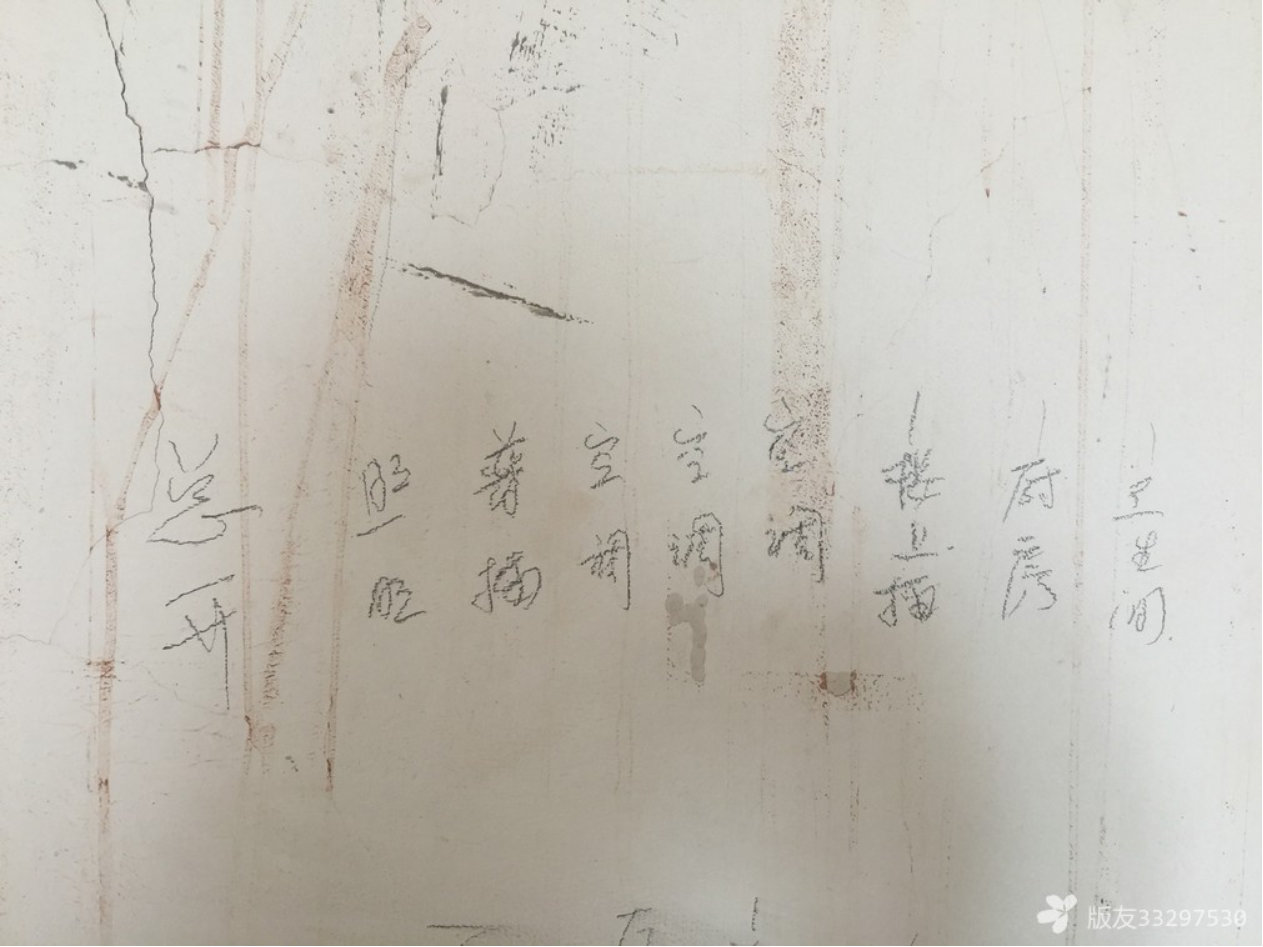 总开
照明
普插
空调
空调
空调
楼上插
厨房
卫生间
版友33297530